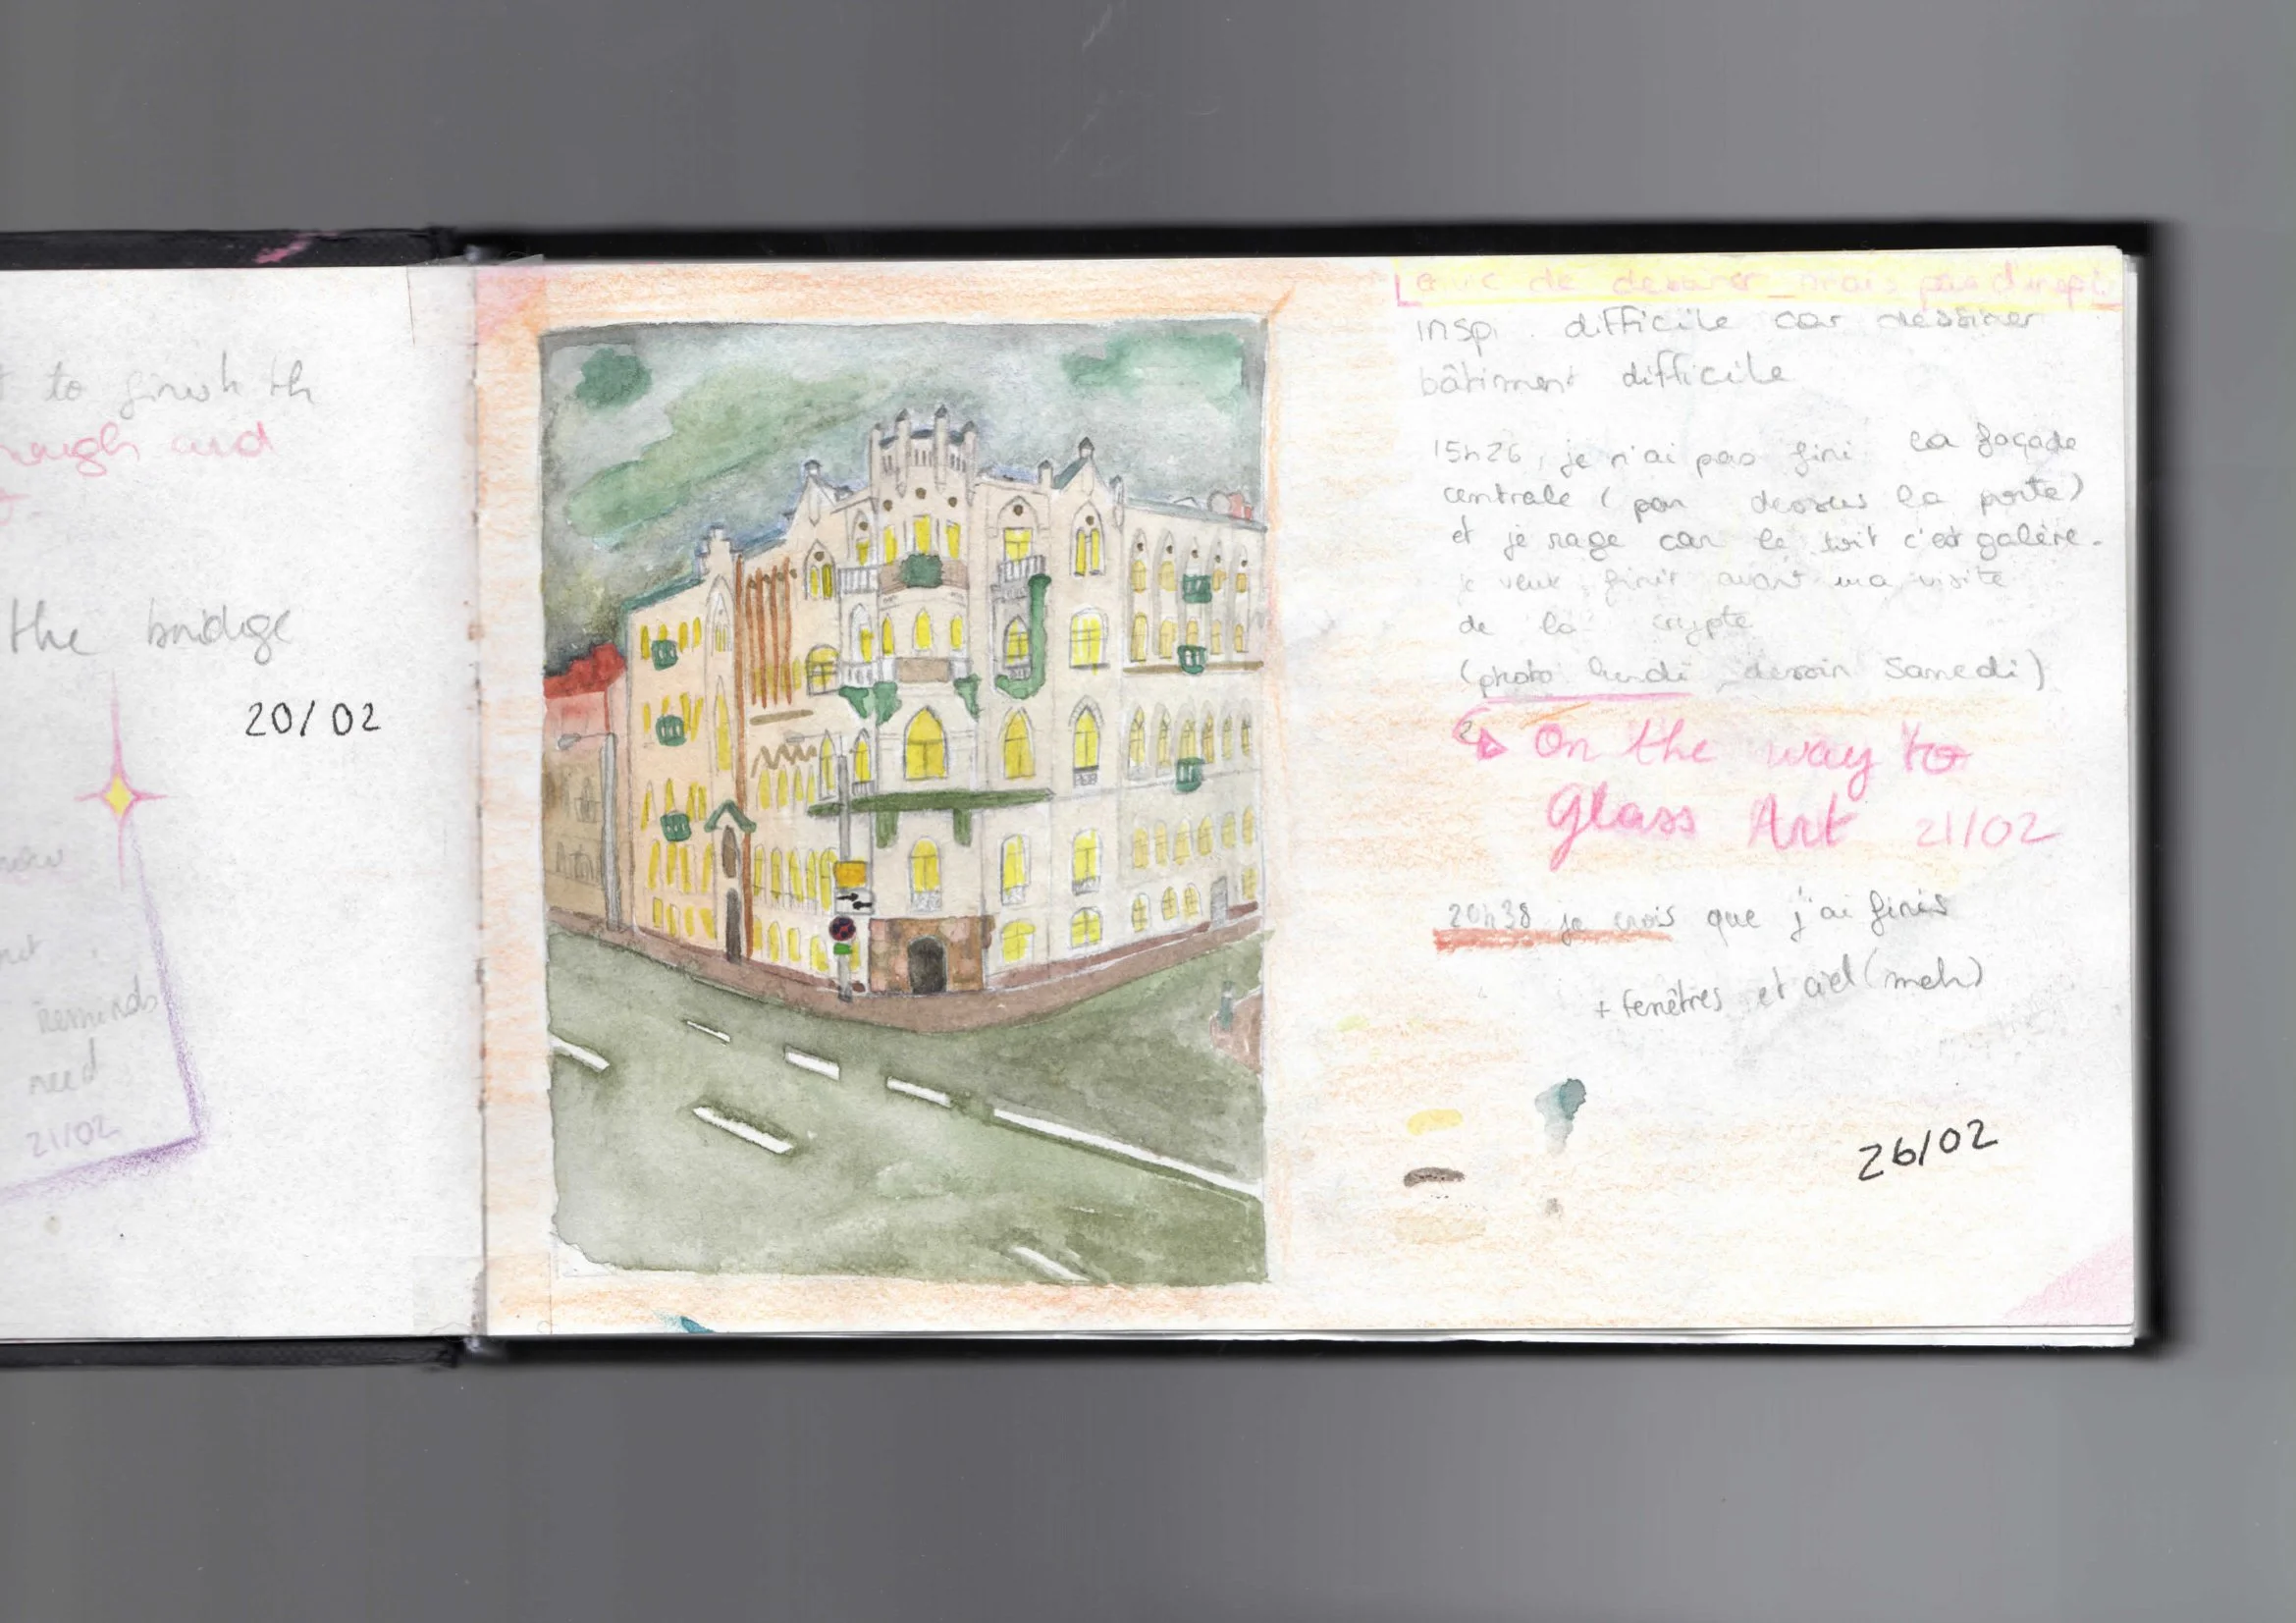 to finish th
and
the bridge
20/02
Reminds
need
21/02
envie de dessiner mais pas d'inspi
inspi. difficile car dessiner
bâtiment difficile
15h26, je n'ai pas fini la façade
centrale (par dessus la porte)
et je rage car le toit c'est galère.
je veux finir avant ma visite
de la crypte
(photo lundi, dessin Samedi)
On the way to
Glass Art 21/02
20h38 je crois que j'ai finis
+ fenêtres et ciel (meh)
26/02